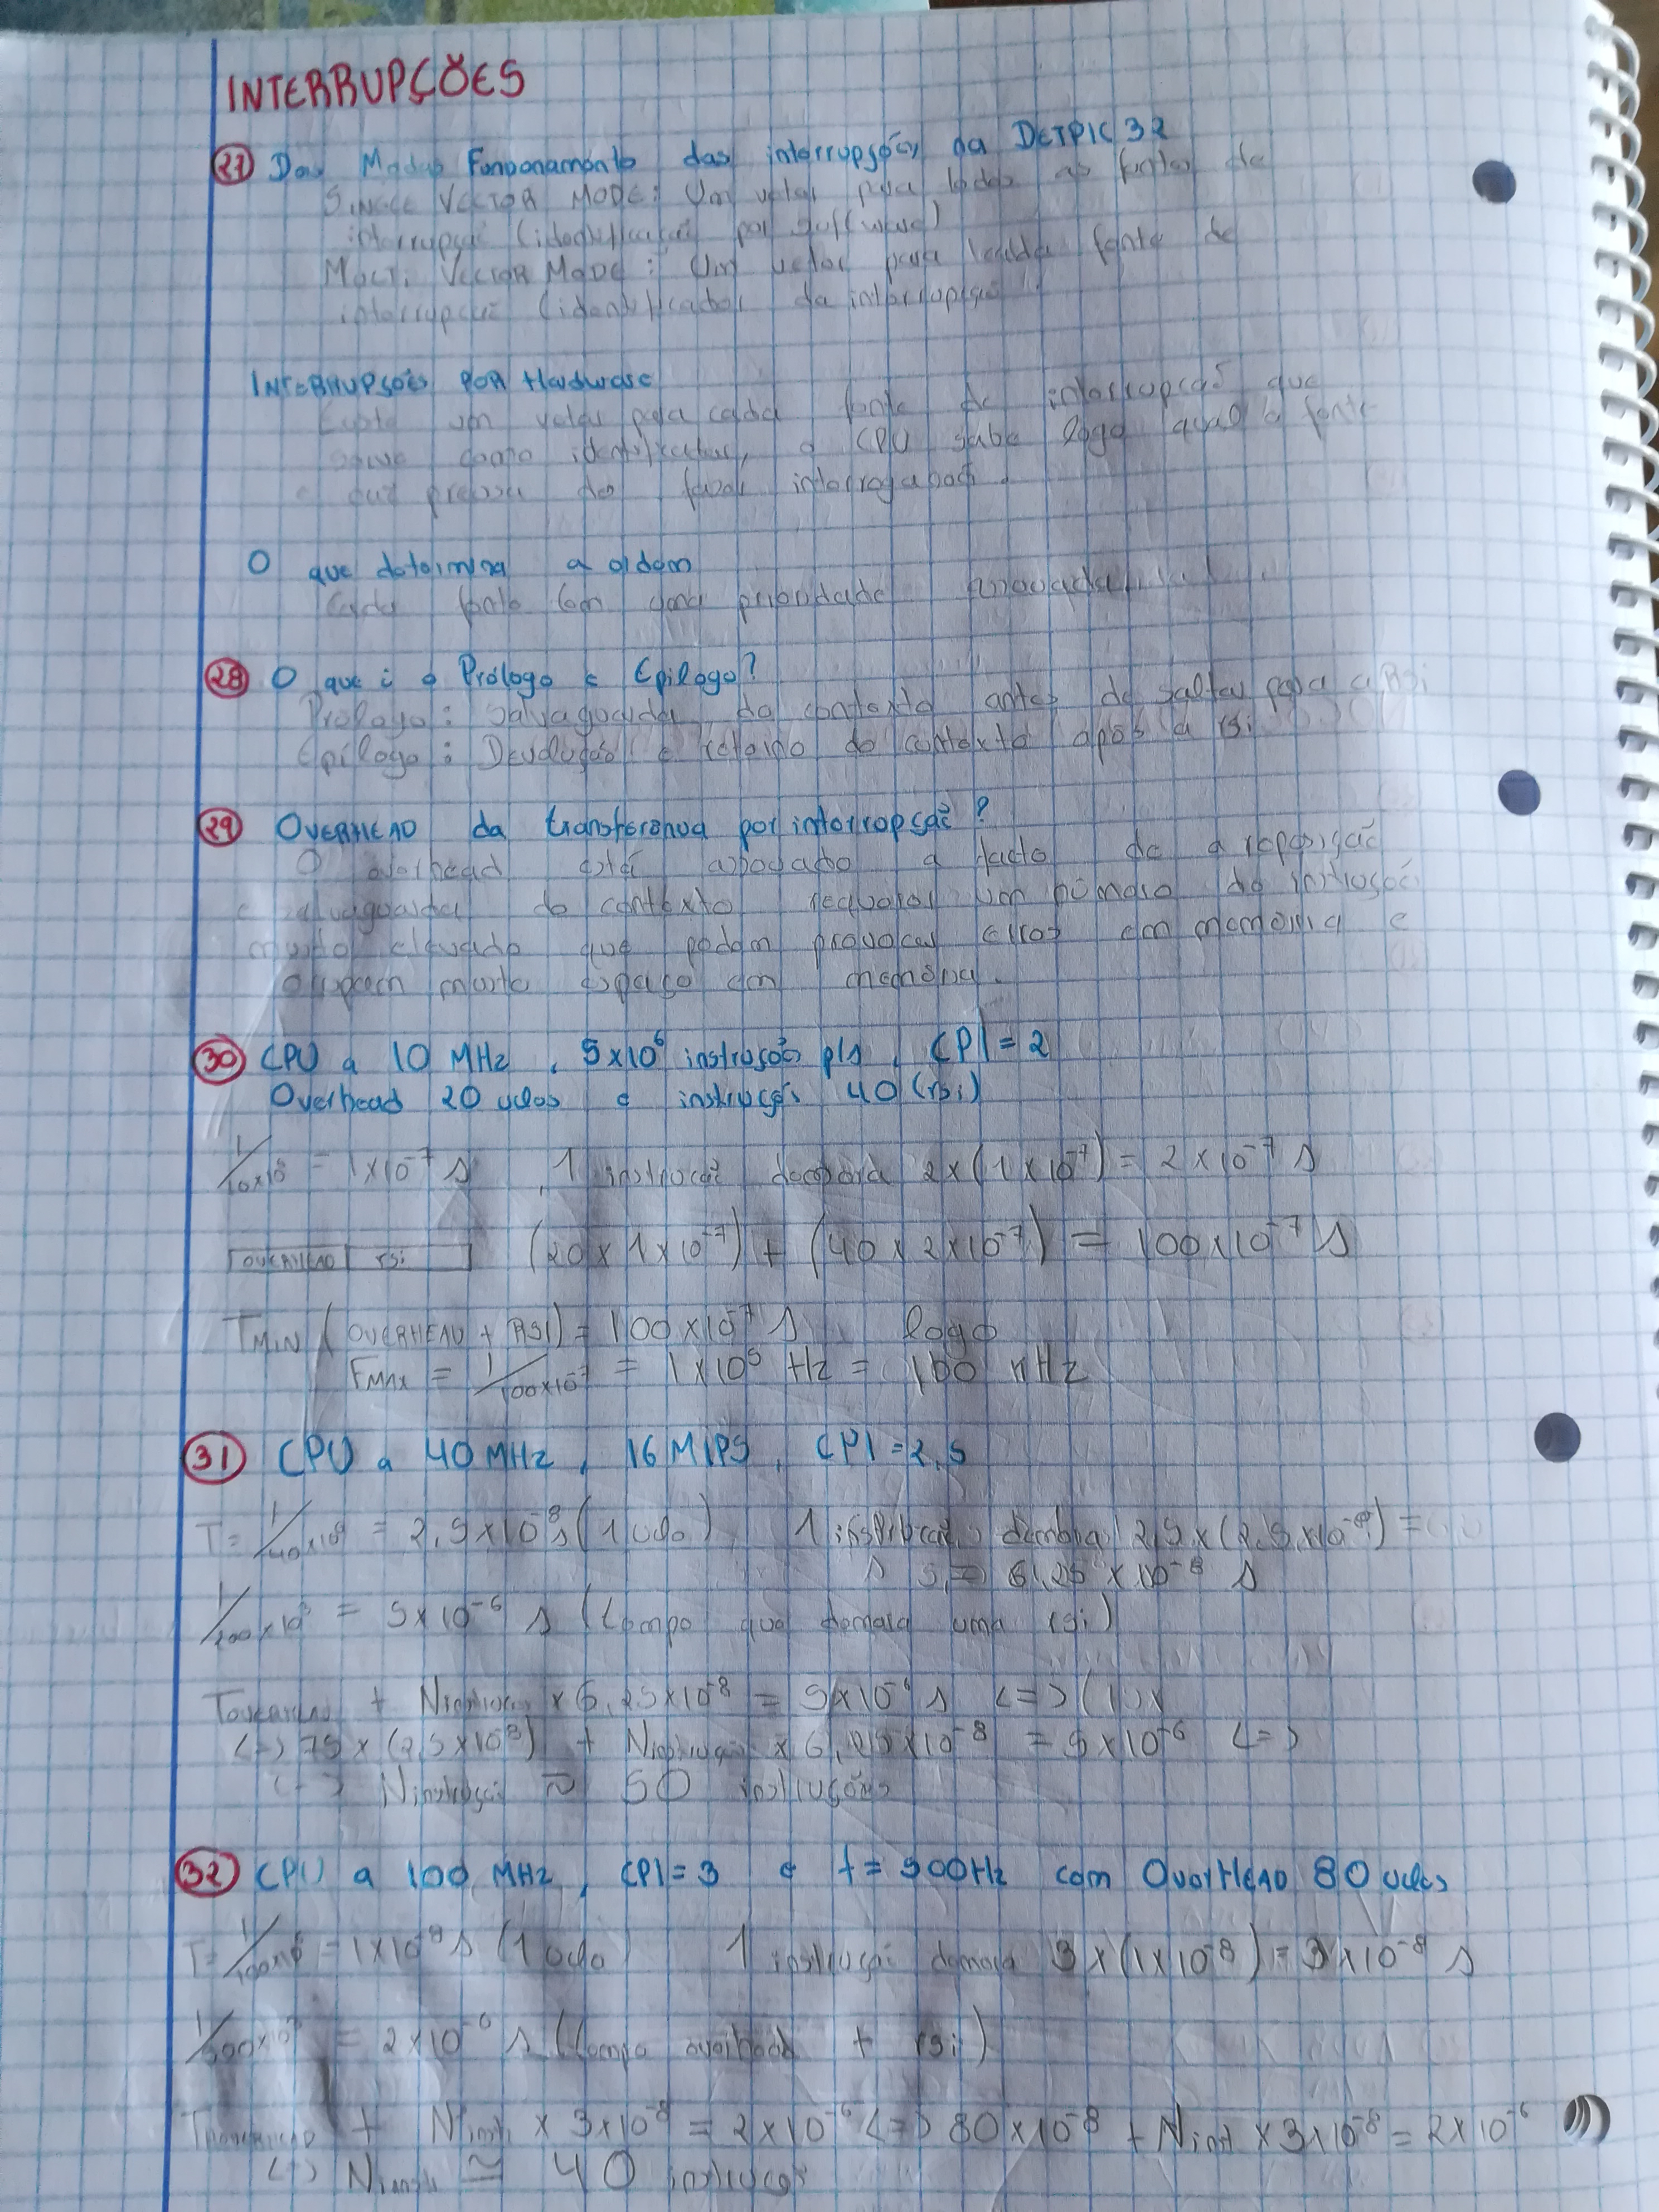 INTERRUPÇÕES
27 Dos Modos Funcionamento das interrupções da DETPIC 32
SINGLE VECTOR MODE: Um vetor para todas as fontes de
interrupção (identificação por software)
MULTI VECTOR MODE: Um vetor para cada fonte de
interrupção (identificador da interrupção)
INTERRUPSÕES POR Hardware
Existe um vetor para cada fonte de interrupção que
serve como identificador, o CPU sabe logo qual a fonte
e que precisa de fazer
O que determina a ordem
Cada fonte tem uma prioridade
28 O que é o Prólogo e Epílogo?
Prólogo: Salvaguarda do contexto antes de saltar para a RSi
Epílogo: Devolução e retorno do contexto após a rsi
29 OVERHEAD da transferência por interrupção?
O overhead está associado a facto de a reposição
e salvaguarda do contexto requerer um número de instruções
muito elevado que podem provocar erros em memória e
ocupam muito espaço em memória.
30 CPU a 10 MHz, 5x10⁶ instruções p/s, CPI = 2
Overhead 20 ciclos e instruções 40 (rsi)
1/10x10⁶ = 1x10⁻⁷ s, 1 instrução demora 2x(1x10⁻⁷) = 2x10⁻⁷ s
OVERHEAD rsi (20x1x10⁻⁷) + (40x2x10⁻⁷) = 100x10⁻⁷ s
TMIN (OVERHEAD + RSI) = 100x10⁻⁷ s logo
FMAX = 1/100x10⁻⁷ = 1x10⁵ Hz = 100 KHz
31 CPU a 40 MHz, 16 MIPS, CPI = 2,5
T = 1/40x10⁶ = 2,5x10⁻⁸ s (1 ciclo), 1 instrução demora 2,5x(2,5x10⁻⁸) =
= 6,25x10⁻⁸ s
1/200x10³ = 5x10⁻⁶ s (tempo que demora uma rsi)
Toverhead + Ninstruções x 6,25x10⁻⁸ = 5x10⁻⁶ s <=>
<=> 75x(2,5x10⁻⁸) + Ninstrução x 6,25x10⁻⁸ = 5x10⁻⁶ <=>
<=> Ninstruçõe ≈ 50 instruções
32 CPU a 100 MHz, CPI = 3 e f = 500Hz com OverHEAD 80 ciclos
T = 1/100x10⁶ = 1x10⁻⁸ s (1 ciclo) 1 instrução demora 3x(1x10⁻⁸) = 3x10⁻⁸ s
1/500x10³ = 2x10⁻⁶ s (tempo overhead + rsi)
Toverhead + Ninst x 3x10⁻⁸ = 2x10⁻⁶ <=> 80x10⁻⁸ + Ninst x 3x10⁻⁸ = 2x10⁻⁶
<=> Ninst ≈ 40 instruções